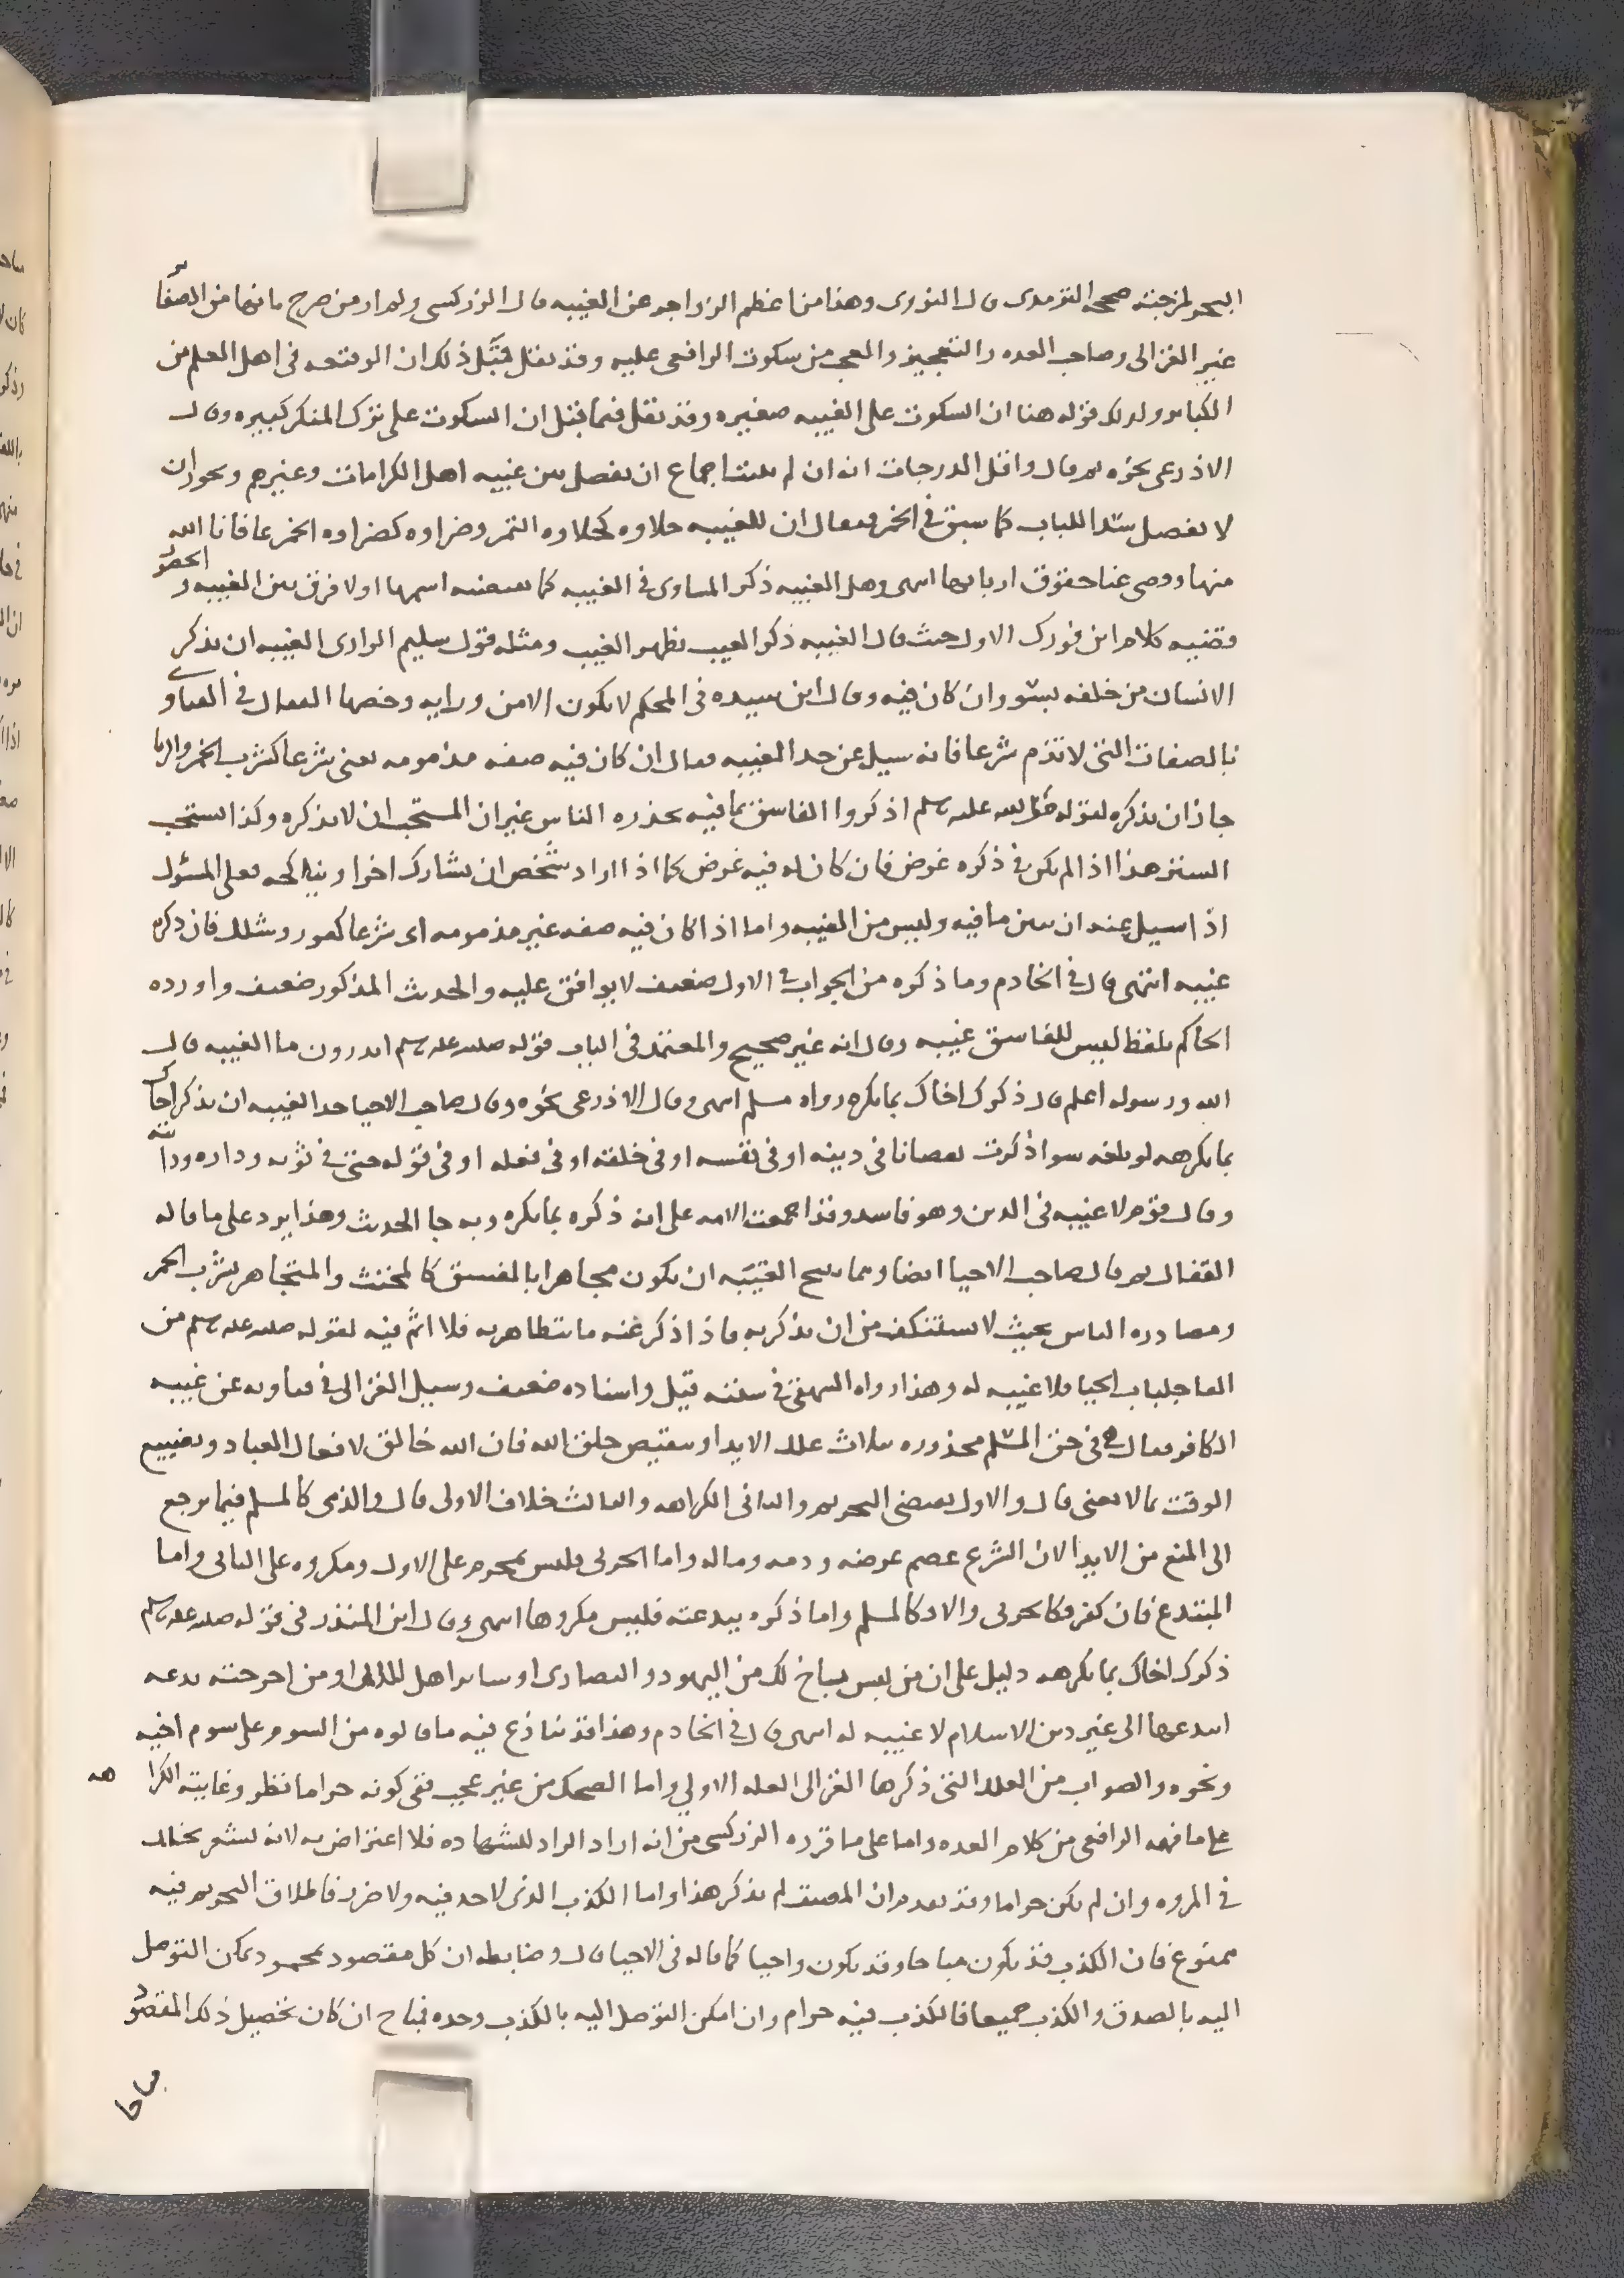 البحر لمزجته صححه الترمذى قال النووى وهذا من اعظم الزواجر عن الغيبه قال الزركسى ولم ار من صرح بانها من الصغاير
غير الغزالى وصاحب العده والعجب من سكوت الرافعى عليه وقد نقل قبل ذلك ان الوقيعه فى اهل العلم من
الكباير ولذلك قوله هنا ان السكوت على الغيبه صغيره وقد نقل فيما قبل ان السكوت على ترك المنكر كبيره وقال
الاذرعى نحوه ثم قال واقل الدرجات انه ان لم يثبت اجماع ان يفصل بين غيبه اهل الكرامات وغيرهم ويجوز ان
لا يفصل سدا للباب كما سبق فى الخمر ويقال ان للغيبه حلاوه كحلاوه التمر وضراوه كضراوه الخمر عافانا الله
منها وقضى عنا حقوق اربابها انتهى وهل الغيبه ذكر المساوى فى الغيبه كما يقتضيه اسمها او لا فرق بين الغيبه والحضور
قضيه كلام ابن فورك الاول حيث قال الغيبه ذكر العيب بظهر الغيب ومثله قول سليم الرازى الغيبه ان يذكر
الانسان من خلفه بسوء وان كان فيه وقال ابن سيده فى المحكم لا يكون الا من ورايه وخصها القفال فى الفتاوى
بالصفات التى لا تذم شرعا فانه سيل عن حد الغيبه فقال ان كان فيه صفه مذمومه يعنى شرعا كشرب الخمر والربا
جاز ان يذكره لقوله صلى الله عليه وسلم اذكروا الفاسق بما فيه يحذره الناس غير ان المستحب ان لا يذكره وكذا يستحب
الستر هذا اذا لم يكن فى ذكره غرض فان كان له فيه غرض كما اذا اراد شخص ان يشارك اخر او يناكحه فعلى المسئول
اذا سيل عنه ان يبين ما فيه وليس من الغيبه واما اذا كان فيه صفه غير مذمومه اى شرعا كعور وشلل فان ذكره
غيبه انتهى قال فى الخادم وما ذكره من الجواب فى الاول ضعيف لا يوافق عليه والحديث المذكور ضعيف واورده
الحاكم بلفظ ليس للفاسق غيبه وقال انه غير صحيح والمعتمد فى الباب قوله صلى الله عليه وسلم اتدرون ما الغيبه قال
الله ورسوله اعلم قال ذكرك اخاك بما يكره رواه مسلم انتهى وقال الاذرعى نحوه وقال صاحب الاحيا حد الغيبه ان يذكر اخاك
بما يكرهه لو بلغه سوا ذكرت نقصانا فى دينه او فى نفسه او فى خلقه او فى فعله او فى قوله حتى فى ثوبه وداره ودابته
وقال قوم لا غيبه فى الدين وهو فاسد وقد اجمعت الامه على انه ذكره بما يكره وبه جا الحديث وهذا يرد على ما قاله
القفال ثم قال صاحب الاحيا ايضا ومما يبيح الغيبه ان يكون مجاهرا بالفسق كالمخنث والمتجاهر بشرب الخمر
ومصادره الناس بحيث لا يستنكف من ان يذكر به فاذا ذكر عنه ما يتظاهر به فلا اثم فيه لقوله صلى الله عليه وسلم من
القا جلباب الحيا فلا غيبه له وهذا رواه البيهقى فى سننه قيل واسناده ضعيف وسيل الغزالى فى فتاويه عن غيبه
الكافر فقال هى فى حق المسلم محذوره بثلاث علل الايذا وتنقيص خلق الله فان الله خالق لافعال العباد وتضييع
الوقت بما لا يعنى قال والاول يقتضى التحريم والثانى الكراهه والثالث خلاف الاولى قال والذمى كالمسلم فيما يرجع
الى المنع من الايذا لان الشرع عصم عرضه ودمه وماله واما الحربى فليس بمحرم على الاول ومكروه على الثانى واما
المبتدع فان كفر فكالحربى والا فكالمسلم واما ذكره ببدعته فليس مكروها انتهى وقال ابن المنذر فى قوله صلى الله عليه وسلم
ذكرك اخاك بما يكرهه دليل على ان من ليس باخ لك من اليهود والنصارى او ساير اهل الملل او من اخرجته بدعه
ابتدعها الى غير دين الاسلام لا غيبه له انتهى قال فى الخادم وهذا قد ينازع فيه ما قالوه من السوم على سوم اخيه
ونحوه والصواب من العلل التى ذكرها الغزالى العله الاولى واما الضحك من غير عجب ففى كونه حراما نظر وغايته الكراهه
على ما فهمه الرافعى من كلام العده واما على ما قرره الزركسى من انه اراد الراد للشهاده فلا اعتراض به لانه يشعر بخلل
فى المروه وان لم يكن حراما وقد تقدم ان المصنف لم يذكر هذا واما الكذب الذى لا حد فيه ولا ضرر فاطلاق التحريم فيه
ممنوع فان الكذب قد يكون مباحا وقد يكون واجبا كما قاله فى الاحيا قال وضابطه ان كل مقصود محمود يمكن التوصل
اليه بالصدق والكذب جميعا فالكذب فيه حرام وان امكن التوصل اليه بالكذب وحده فمباح ان كان تحصيل ذلك المقصود
مباحا